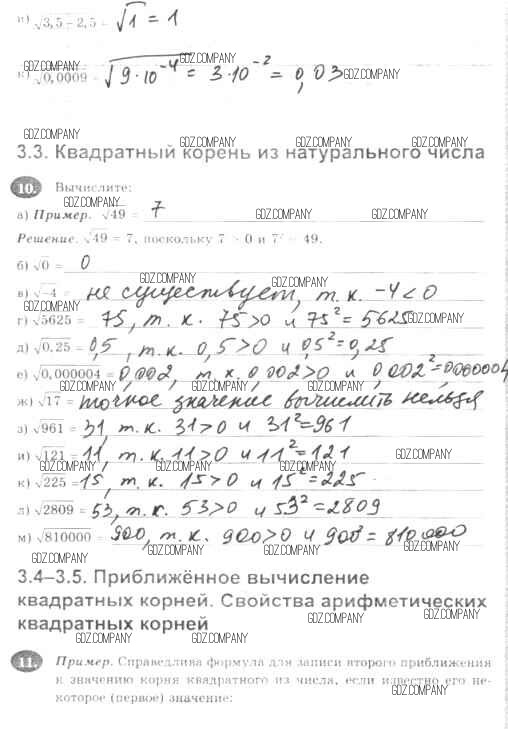 и) √3,5 − 2,5 = √1 = 1
GDZ.COMPANY GDZ.COMPANY
к) √0,0009 = √9·10⁻⁴ = 3·10⁻² = 0,03 GDZ.COMPANY
GDZ.COMPANY GDZ.COMPANY GDZ.COMPANY GDZ.COMPANY
3.3. Квадратный корень из натурального числа
10. Вычислите:
GDZ.COMPANY
а) Пример. √49 = 7 GDZ.COMPANY GDZ.COMPANY
Решение. √49 = 7, поскольку 7 > 0 и 7² = 49.
б) √0 = 0
GDZ.COMPANY
в) √−4 = не существует, т. к. −4 < 0
г) √5625 = 75, т. к. 75 > 0 и 75² = 5625 GDZ.COMPANY
д) √0,25 = 0,5, т. к. 0,5 > 0 и 0,5² = 0,25
е) √0,000004 = 0,002, т. к. 0,002 > 0 и 0,002² = 0,000004
GDZ.COMPANY GDZ.COMPANY GDZ.COMPANY GDZ.COMPANY
ж) √17 = точное значение вычислить нельзя
з) √961 = 31, т. к. 31 > 0 и 31² = 961
и) √121 = 11, т. к. 11 > 0 и 11² = 121 GDZ.COMPANY
GDZ.COMPANY GDZ.COMPANY GDZ.COMPANY
к) √225 = 15, т. к. 15 > 0 и 15² = 225
л) √2809 = 53, т. к. 53 > 0 и 53² = 2809
м) √810000 = 900, т. к. 900 > 0 и 900² = 810 000
GDZ.COMPANY GDZ.COMPANY GDZ.COMPANY GDZ.COMPANY
3.4–3.5. Приближённое вычисление
квадратных корней. Свойства арифметических
квадратных корней
GDZ.COMPANY GDZ.COMPANY GDZ.COMPANY GDZ.COMPANY
11. Пример. Справедлива формула для записи второго приближения
к значению корня квадратного из числа, если известно его не-
GDZ.COMPANY
которое (первое) значение: